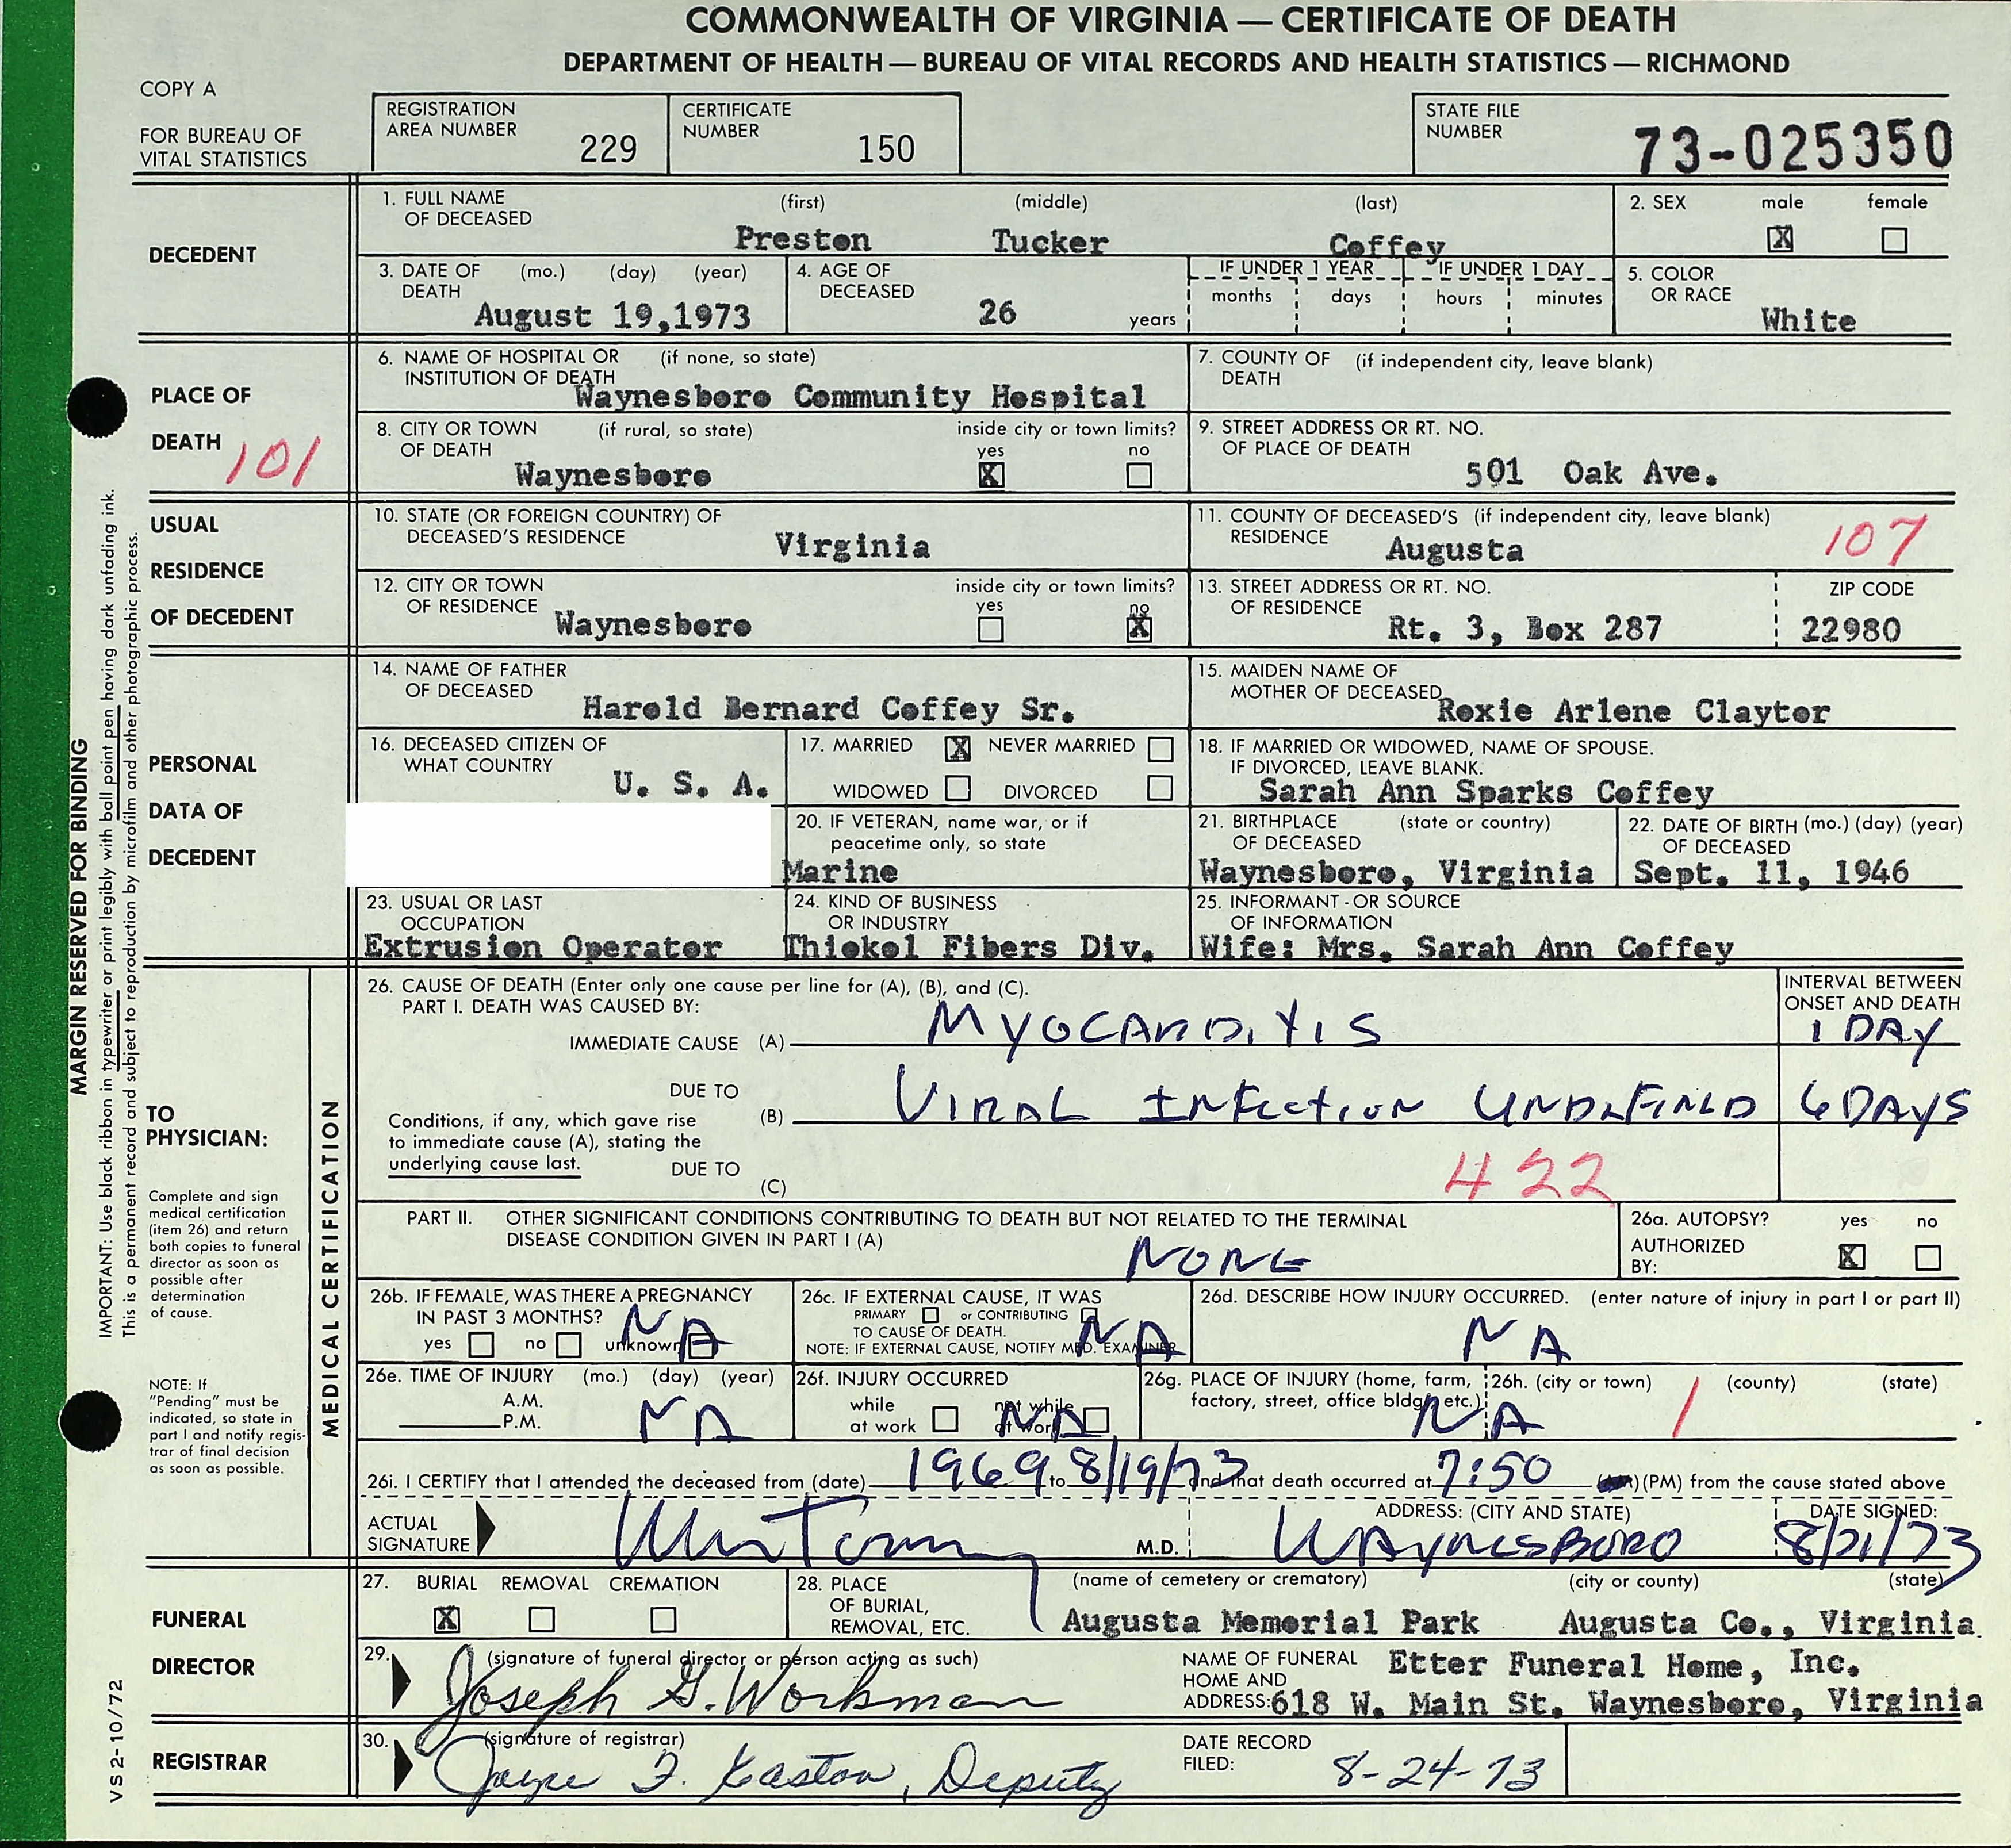 COMMONWEALTH OF VIRGINIA — CERTIFICATE OF DEATH
DEPARTMENT OF HEALTH — BUREAU OF VITAL RECORDS AND HEALTH STATISTICS — RICHMOND
COPY A
FOR BUREAU OF
VITAL STATISTICS
REGISTRATION
AREA NUMBER 229
CERTIFICATE
NUMBER 150
STATE FILE
NUMBER 73-025350
DECEDENT
1. FULL NAME (first) (middle) (last)
OF DECEASED
Preston Tucker Coffey
2. SEX male female
X
3. DATE OF (mo.) (day) (year)
DEATH
August 19,1973
4. AGE OF
DECEASED 26 years
IF UNDER 1 YEAR IF UNDER 1 DAY
months days hours minutes
5. COLOR
OR RACE
White
PLACE OF
DEATH 101
6. NAME OF HOSPITAL OR (if none, so state)
INSTITUTION OF DEATH
Waynesboro Community Hospital
7. COUNTY OF (if independent city, leave blank)
DEATH
8. CITY OR TOWN (if rural, so state) inside city or town limits?
OF DEATH yes no
Waynesboro X
9. STREET ADDRESS OR RT. NO.
OF PLACE OF DEATH
501 Oak Ave.
USUAL
RESIDENCE
OF DECEDENT
10. STATE (OR FOREIGN COUNTRY) OF
DECEASED'S RESIDENCE Virginia
11. COUNTY OF DECEASED'S (if independent city, leave blank)
RESIDENCE Augusta 107
12. CITY OR TOWN inside city or town limits?
OF RESIDENCE yes no
Waynesboro X
13. STREET ADDRESS OR RT. NO. ZIP CODE
OF RESIDENCE
Rt. 3, Box 287 22980
PERSONAL
DATA OF
DECEDENT
14. NAME OF FATHER
OF DECEASED
Harold Bernard Coffey Sr.
15. MAIDEN NAME OF
MOTHER OF DECEASED
Roxie Arlene Claytor
16. DECEASED CITIZEN OF
WHAT COUNTRY
U. S. A.
17. MARRIED X NEVER MARRIED
WIDOWED DIVORCED
18. IF MARRIED OR WIDOWED, NAME OF SPOUSE.
IF DIVORCED, LEAVE BLANK.
Sarah Ann Sparks Coffey
20. IF VETERAN, name war, or if
peacetime only, so state
Marine
21. BIRTHPLACE (state or country)
OF DECEASED
Waynesboro, Virginia
22. DATE OF BIRTH (mo.) (day) (year)
OF DECEASED
Sept. 11, 1946
23. USUAL OR LAST
OCCUPATION
Extrusion Operator
24. KIND OF BUSINESS
OR INDUSTRY
Thiokol Fibers Div.
25. INFORMANT - OR SOURCE
OF INFORMATION
Wife: Mrs. Sarah Ann Coffey
MARGIN RESERVED FOR BINDING
IMPORTANT: Use black ribbon in typewriter or print legibly with ball point pen having dark unfading ink.
This is a permanent record and subject to reproduction by microfilm and other photographic process.
TO
PHYSICIAN:
Complete and sign
medical certification
(item 26) and return
both copies to funeral
director as soon as
possible after
determination
of cause.
NOTE: If
"Pending" must be
indicated, so state in
part I and notify regis-
trar of final decision
as soon as possible.
MEDICAL CERTIFICATION
26. CAUSE OF DEATH (Enter only one cause per line for (A), (B), and (C).
PART I. DEATH WAS CAUSED BY:
INTERVAL BETWEEN
ONSET AND DEATH
IMMEDIATE CAUSE (A) MYOCARDITIS 1 DAY
DUE TO
(B) VIRAL INFECTION UNDEFINED 6 DAYS
Conditions, if any, which gave rise
to immediate cause (A), stating the
underlying cause last.
DUE TO
(C)
422
PART II. OTHER SIGNIFICANT CONDITIONS CONTRIBUTING TO DEATH BUT NOT RELATED TO THE TERMINAL
DISEASE CONDITION GIVEN IN PART I (A)
NONE
26a. AUTOPSY? yes no
AUTHORIZED
BY: X
26b. IF FEMALE, WAS THERE A PREGNANCY
IN PAST 3 MONTHS?
yes no unknown NA
26c. IF EXTERNAL CAUSE, IT WAS
PRIMARY or CONTRIBUTING
TO CAUSE OF DEATH.
NOTE: IF EXTERNAL CAUSE, NOTIFY MED. EXAMINER
NA
26d. DESCRIBE HOW INJURY OCCURRED. (enter nature of injury in part I or part II)
NA
26e. TIME OF INJURY (mo.) (day) (year)
A.M.
P.M. NA
26f. INJURY OCCURRED
while not while
at work at work
NA
26g. PLACE OF INJURY (home, farm,
factory, street, office bldg., etc.)
NA
26h. (city or town) (county) (state)
1
26i. I CERTIFY that I attended the deceased from (date) 1969 to 8/19/73 and that death occurred at 7:50 (PM) from the cause stated above
ACTUAL
SIGNATURE M.D.
ADDRESS: (CITY AND STATE)
WAYNESBORO
DATE SIGNED:
8/21/73
FUNERAL
DIRECTOR
27. BURIAL REMOVAL CREMATION
X
28. PLACE
OF BURIAL,
REMOVAL, ETC.
(name of cemetery or crematory) (city or county) (state)
Augusta Memorial Park Augusta Co., Virginia
29. (signature of funeral director or person acting as such)
Joseph G. Workman
NAME OF FUNERAL
HOME AND
ADDRESS:
Etter Funeral Home, Inc.
618 W. Main St. Waynesboro, Virginia
REGISTRAR
30. (signature of registrar)
Jayne F. Easton, Deputy
DATE RECORD
FILED: 8-24-73
VS 2-10/72